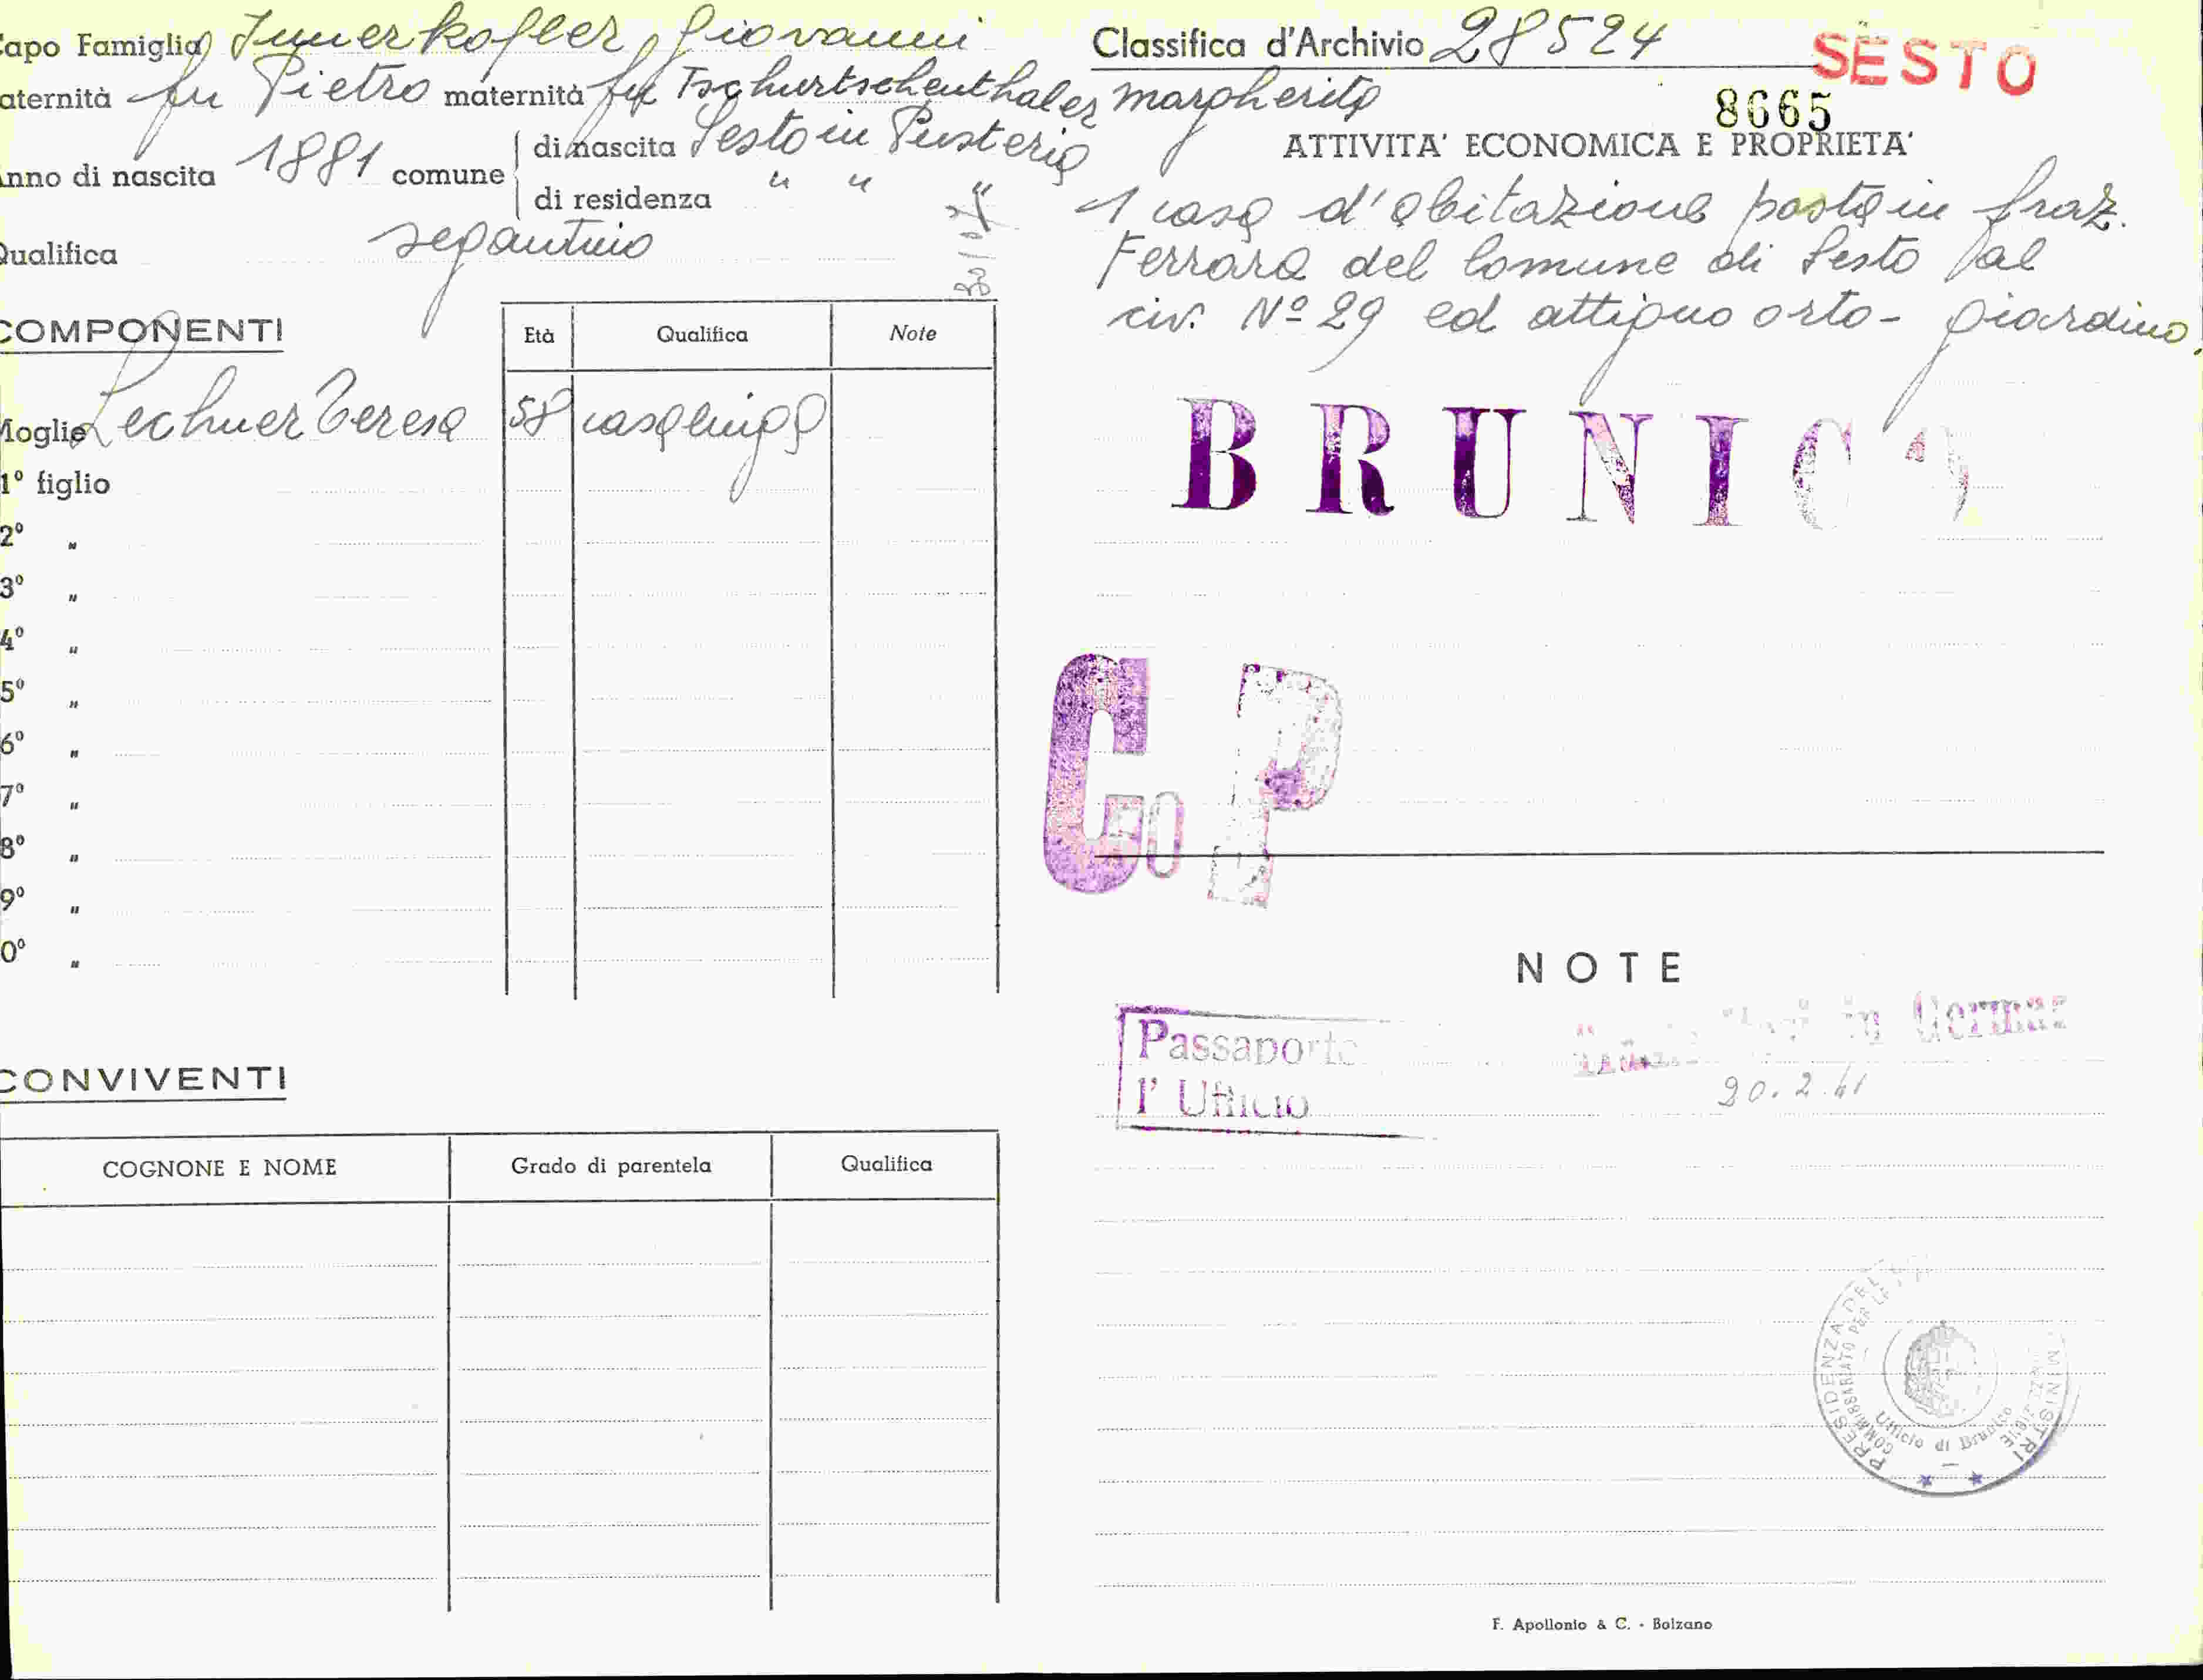 apo Famiglia Innerkofler Giovanni
aternità fu Pietro maternità fu Tschurtschenthaler Margherita
nno di nascita 1881 comune di nascita Sesto in Pusteria
di residenza " " "
Qualifica segantino
COMPONENTI
Età Qualifica Note
Moglie Lechner Teresa 58 casalinga
1º figlio
2º "
3º "
4º "
5º "
6º "
7º "
8º "
9º "
0º "
CONVIVENTI
COGNONE E NOME Grado di parentela Qualifica
Classifica d'Archivio 28524
SESTO
8665
ATTIVITA' ECONOMICA E PROPRIETA'
1 casa d'abitazione posta in fraz.
Ferrara del Comune di Sesto al
civ. Nº 29 ed attiguo orto - giardino,
BRUNICO
G P
NOTE
Passaporto
l' Ufficio
in
20.2.41
PRESIDENZA DEL MINISTRI
COMMISSARIATO PER LE
Ufficio di Brunico
F. Apollonio & C. - Bolzano